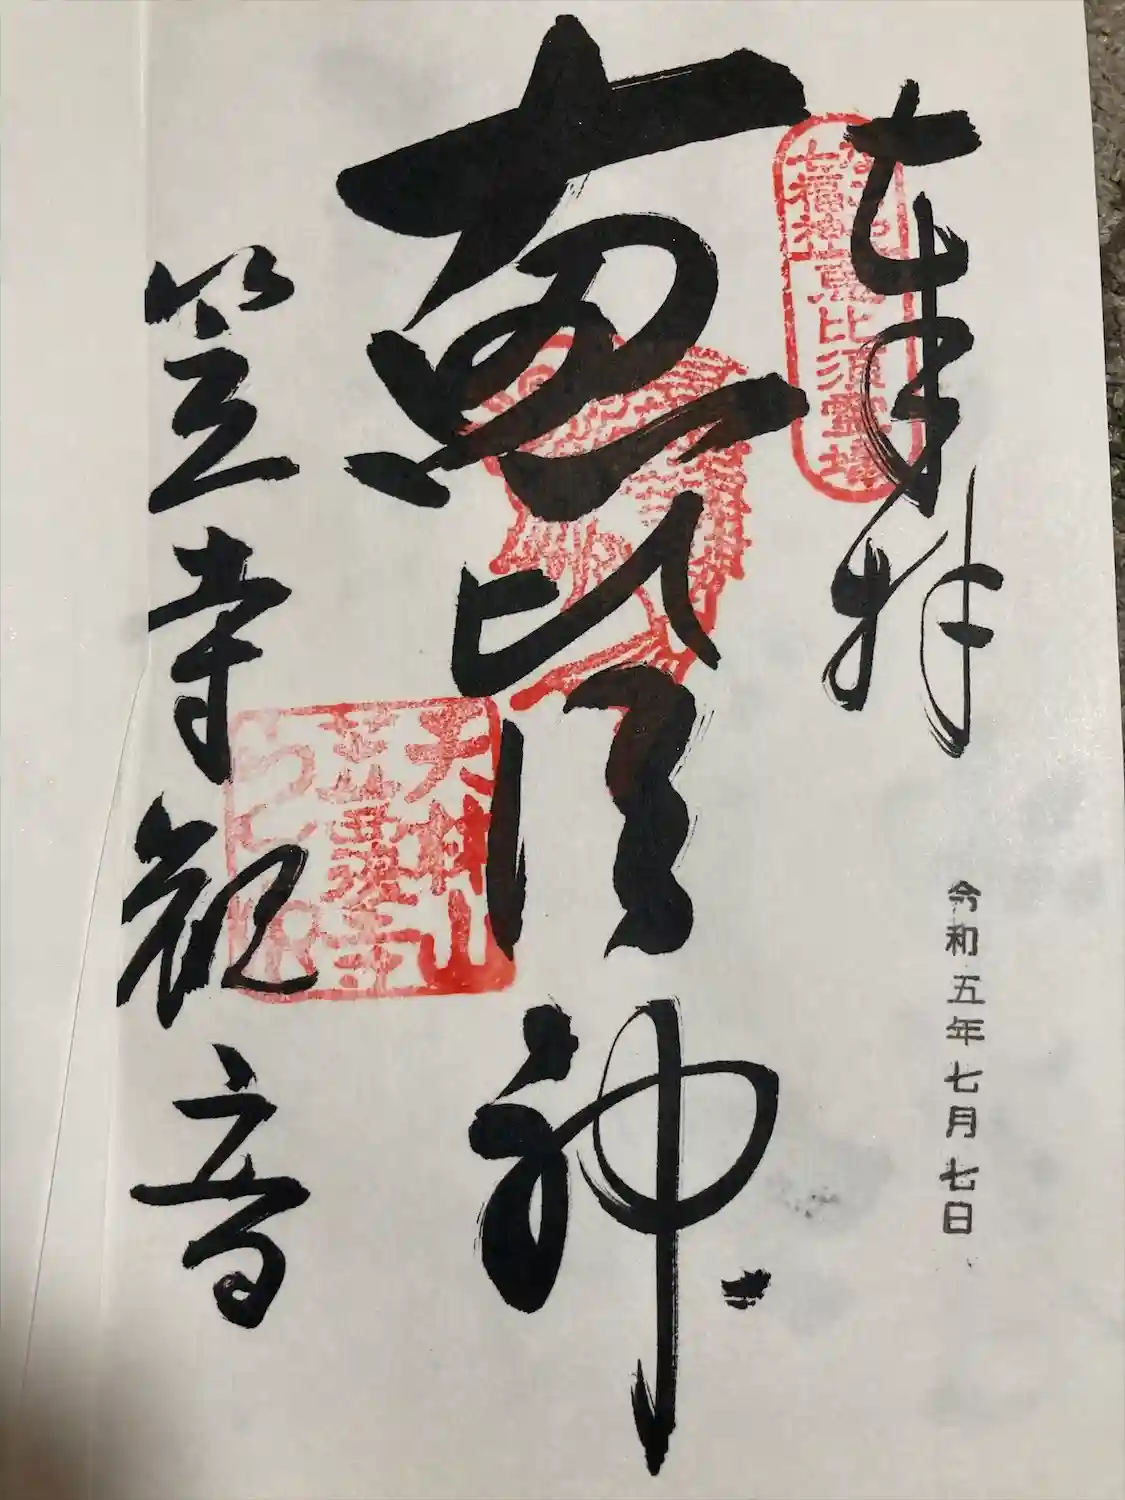 奉拝
なごや
七福神
恵比須霊場
令和五年七月七日
恵比須神
天林山
笠覆寺
笠寺観音